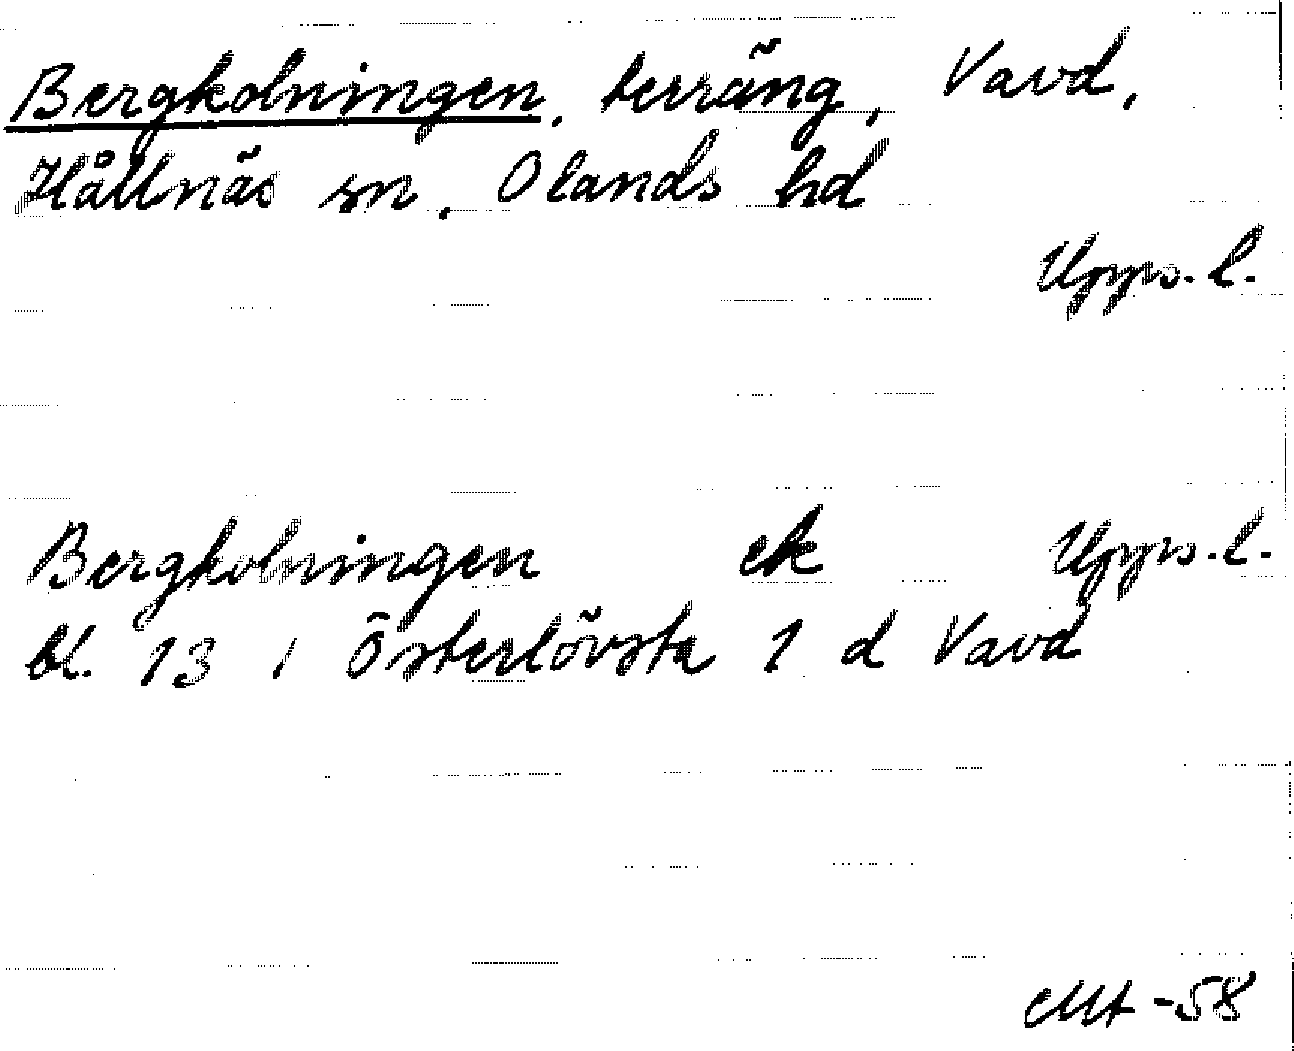 Bergkolningen, terräng, Vavd,
Hållnäs sn, Olands hd
Upps. l.
Bergkolningen ek Upps. l.
bl. 13 i Österlövsta 1 d Vavd
-58